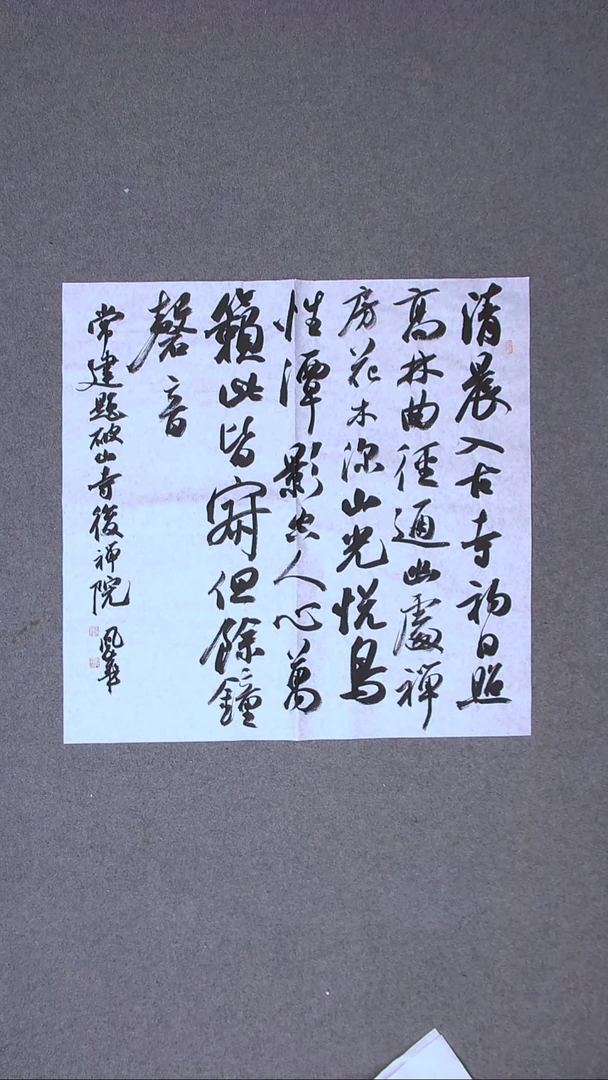 清晨入古寺初日照
高林曲徑通幽處禪
房花木深山光悅鳥
性潭影空人心萬
籟此皆寂但餘鐘
磬音
常建題破山寺後禪院